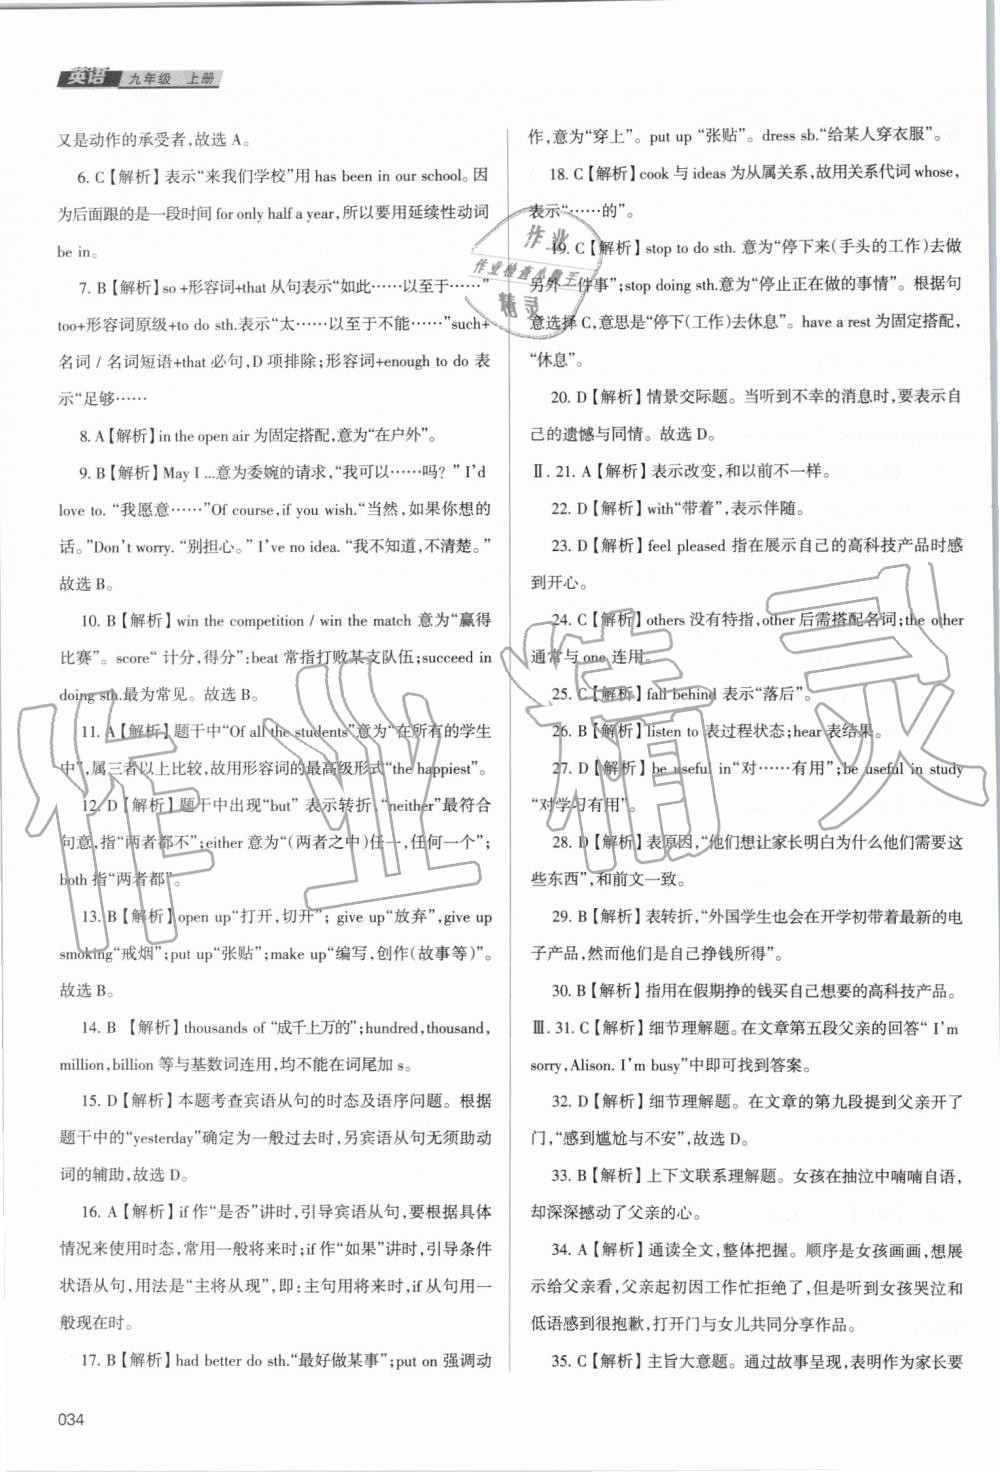 英语 九年级 上册
又是动作的承受者,故选 A。
6. C【解析】表示“来我们学校”用 has been in our school。因
为后面跟的是一段时间 for only half a year,所以要用延续性动词
be in。
7. B【解析】so +形容词+that 从句表示“如此……以至于……”
too+形容词原级+to do sth.表示“太……以至于不能……”such+
名词 / 名词短语+that 必句,D 项排除;形容词+enough to do 表
示“足够……
8. A【解析】in the open air 为固定搭配,意为“在户外”。
9. B【解析】May I ...意为委婉的请求,“我可以……吗? ” I'd
love to. “我愿意……”Of course,if you wish.“当然,如果你想的
话。”Don't worry. “别担心。” I've no idea. “我不知道,不清楚。”
故选 B。
10. B【解析】win the competition / win the match 意为“赢得
比赛”。score“ 计分,得分”:beat 常指打败某支队伍;succeed in
doing sth.最为常见。故选 B。
11. A【解析】题干中“Of all the students”意为“在所有的学生
中”,属三者以上比较,故用形容词的最高级形式“the happiest”。
12. D【解析】题干中出现“but” 表示转折,“neither”最符合
句意,指“两者都不”;either 意为“(两者之中)任一,任何一个”;
both 指“两者都”。
13. B【解析】open up“打开,切开”; give up“放弃”,give up
smoking“戒烟”;put up“张贴”;make up“编写,创作(故事等)”。
故选 B。
14. B 【解析】thousands of “成千上万的”;hundred,thousand,
million,billion 等与基数词连用,均不能在词尾加 s。
15. D【解析】本题考查宾语从句的时态及语序问题。根据
题干中的“yesterday”确定为一般过去时,另宾语从句无须助动
词的辅助,故选 D。
16. A【解析】if 作“是否”讲时,引导宾语从句,要根据具体
情况来使用时态,常用一般将来时;if 作“如果”讲时,引导条件
状语从句,用法是“主将从现”,即:主句用将来时,if 从句用一
般现在时。
17. B【解析】had better do sth.“最好做某事”;put on 强调动
作,意为“穿上”。put up “张贴”。dress sb.“给某人穿衣服”。
18. C【解析】cook 与 ideas 为从属关系,故用关系代词 whose,
表示“……的”。
19. C【解析】stop to do sth. 意为“停下来(手头的工作)去做
另外一件事”;stop doing sth.意为“停止正在做的事情”。根据句
意选择 C,意思是“停下(工作)去休息”。have a rest 为固定搭配,
“休息”。
20. D【解析】情景交际题。当听到不幸的消息时,要表示自
己的遗憾与同情。故选 D。
Ⅱ. 21. A【解析】表示改变,和以前不一样。
22. D【解析】with“带着”,表示伴随。
23. D【解析】feel pleased 指在展示自己的高科技产品时感
到开心。
24. C【解析】others 没有特指,other 后需搭配名词;the other
通常与 one 连用。
25. C【解析】fall behind 表示“落后”。
26. B【解析】listen to 表过程状态;hear 表结果。
27. D【解析】be useful in“对……有用”;be useful in study
“对学习有用”。
28. D【解析】表原因,“他们想让家长明白为什么他们需要这
些东西”,和前文一致。
29. B【解析】表转折,“外国学生也会在开学初带着最新的电
子产品,然而他们是自己挣钱所得”。
30. B【解析】指用在假期挣的钱买自己想要的高科技产品。
Ⅲ. 31. C【解析】细节理解题。在文章第五段父亲的回答“ I'm
sorry,Alison. I'm busy”中即可找到答案。
32. D【解析】细节理解题。在文章的第九段提到父亲开了
门,“感到尴尬与不安”,故选 D。
33. B【解析】上下文联系理解题。女孩在抽泣中喃喃自语,
却深深撼动了父亲的心。
34. A【解析】通读全文,整体把握。顺序是女孩画画,想展
示给父亲看,父亲起初因工作忙拒绝了,但是听到女孩哭泣和
低语感到很抱歉,打开门与女儿共同分享作品。
35. C【解析】主旨大意题。通过故事呈现,表明作为家长要
034
作业
作业检查小助手
精灵
作业精灵